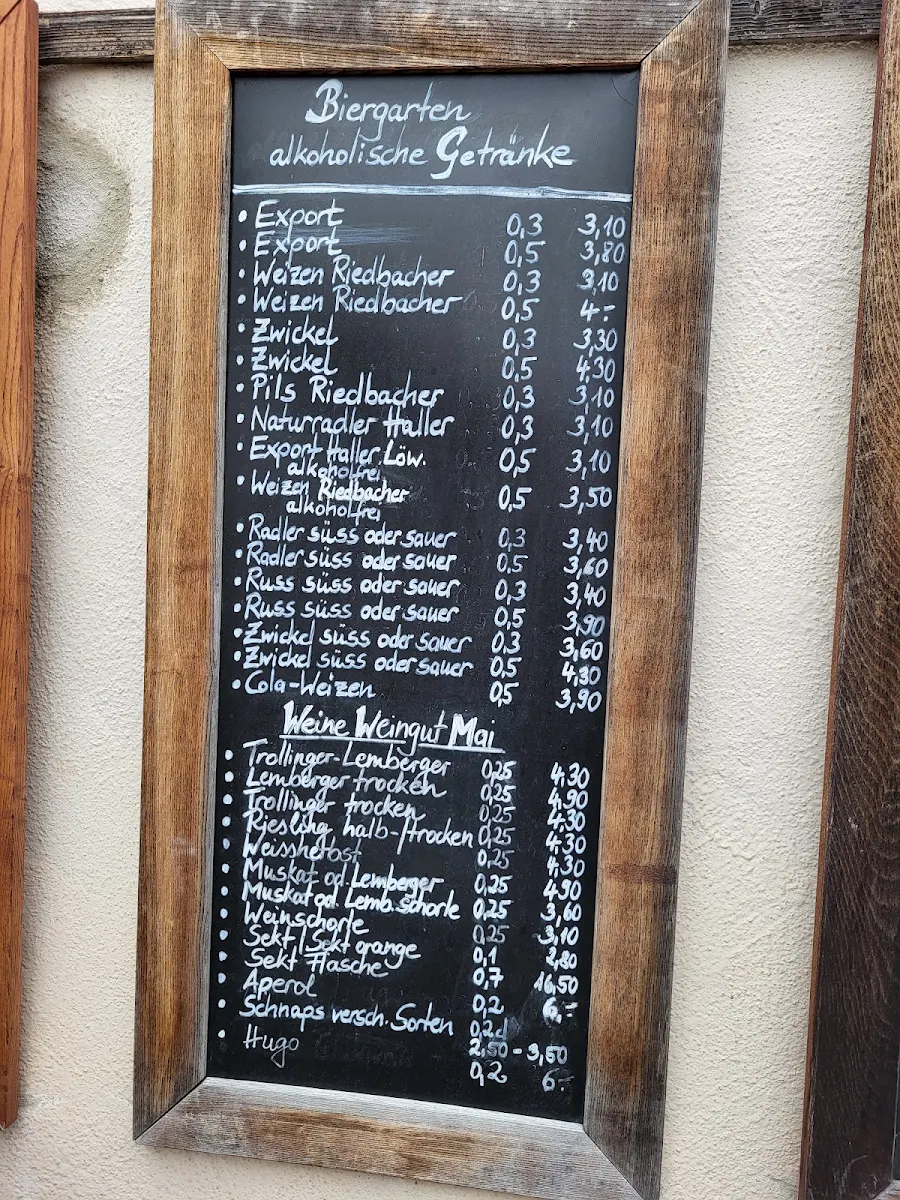 Biergarten
alkoholische Getränke
• Export 0,3 3,10
• Export 0,5 3,80
• Weizen Riedbacher 0,3 3,10
• Weizen Riedbacher 0,5 4.-
• Zwickel 0,3 3,30
• Zwickel 0,5 4,30
• Pils Riedbacher 0,3 3,10
• Naturradler Haller 0,3 3,10
• Export Haller Löw. 0,5 3,10
alkoholfrei
• Weizen Riedbacher 0,5 3,50
alkoholfrei
• Radler süss oder sauer 0,3 3,40
• Radler süss oder sauer 0,5 3,60
• Russ süss oder sauer 0,3 3,40
• Russ süss oder sauer 0,5 3,90
• Zwickel süss oder sauer 0,3 3,60
• Zwickel süss oder sauer 0,5 4,30
• Cola-Weizen 0,5 3,90
Weine Weingut Mai
• Trollinger-Lemberger 0,25 4,30
• Lemberger trocken 0,25 4,90
• Trollinger trocken 0,25 4,30
• Riesling halb-/trocken 0,25 4,30
• Weissherbst 0,25 4,30
• Muskat od. Lemberger 0,25 4,90
• Muskat od. Lemb. Schorle 0,25 3,60
• Weinschorle 0,25 3,10
• Sekt / Sekt orange 0,1 2,80
• Sekt Flasche 0,7 16,50
• Aperol 0,2 6.-
• Schnaps versch. Sorten 0,2cl
2,50 - 3,50
• Hugo 0,2 6.-